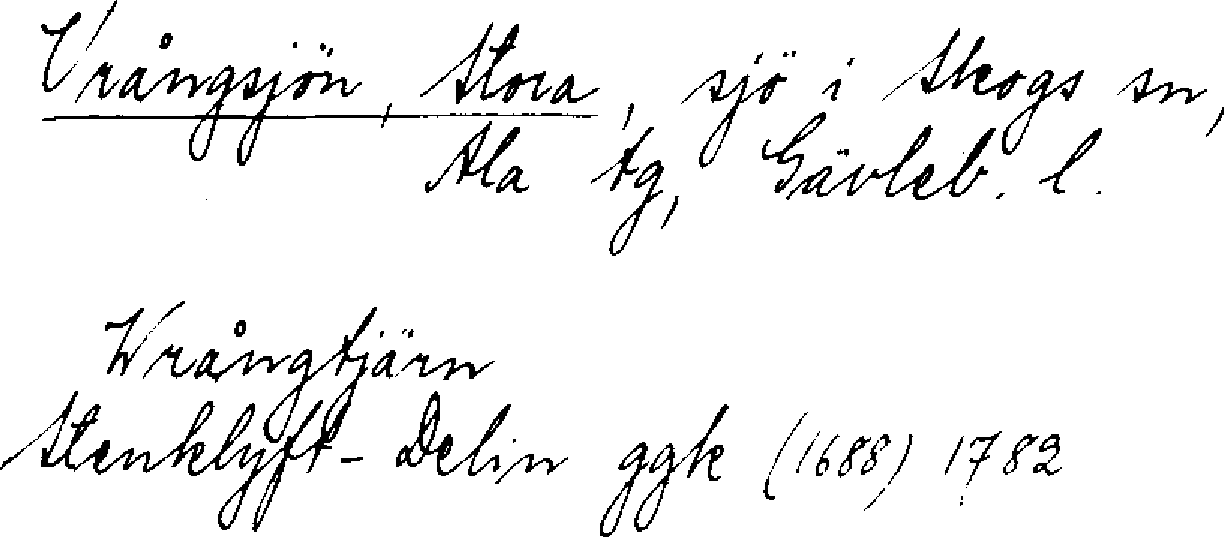 Vrångsjön, Stora, sjö i Skogs sn,
Ala tg, Gävleb. l.
Wrångtjärn
Stenklyft- Delin ggk (1688) 1782